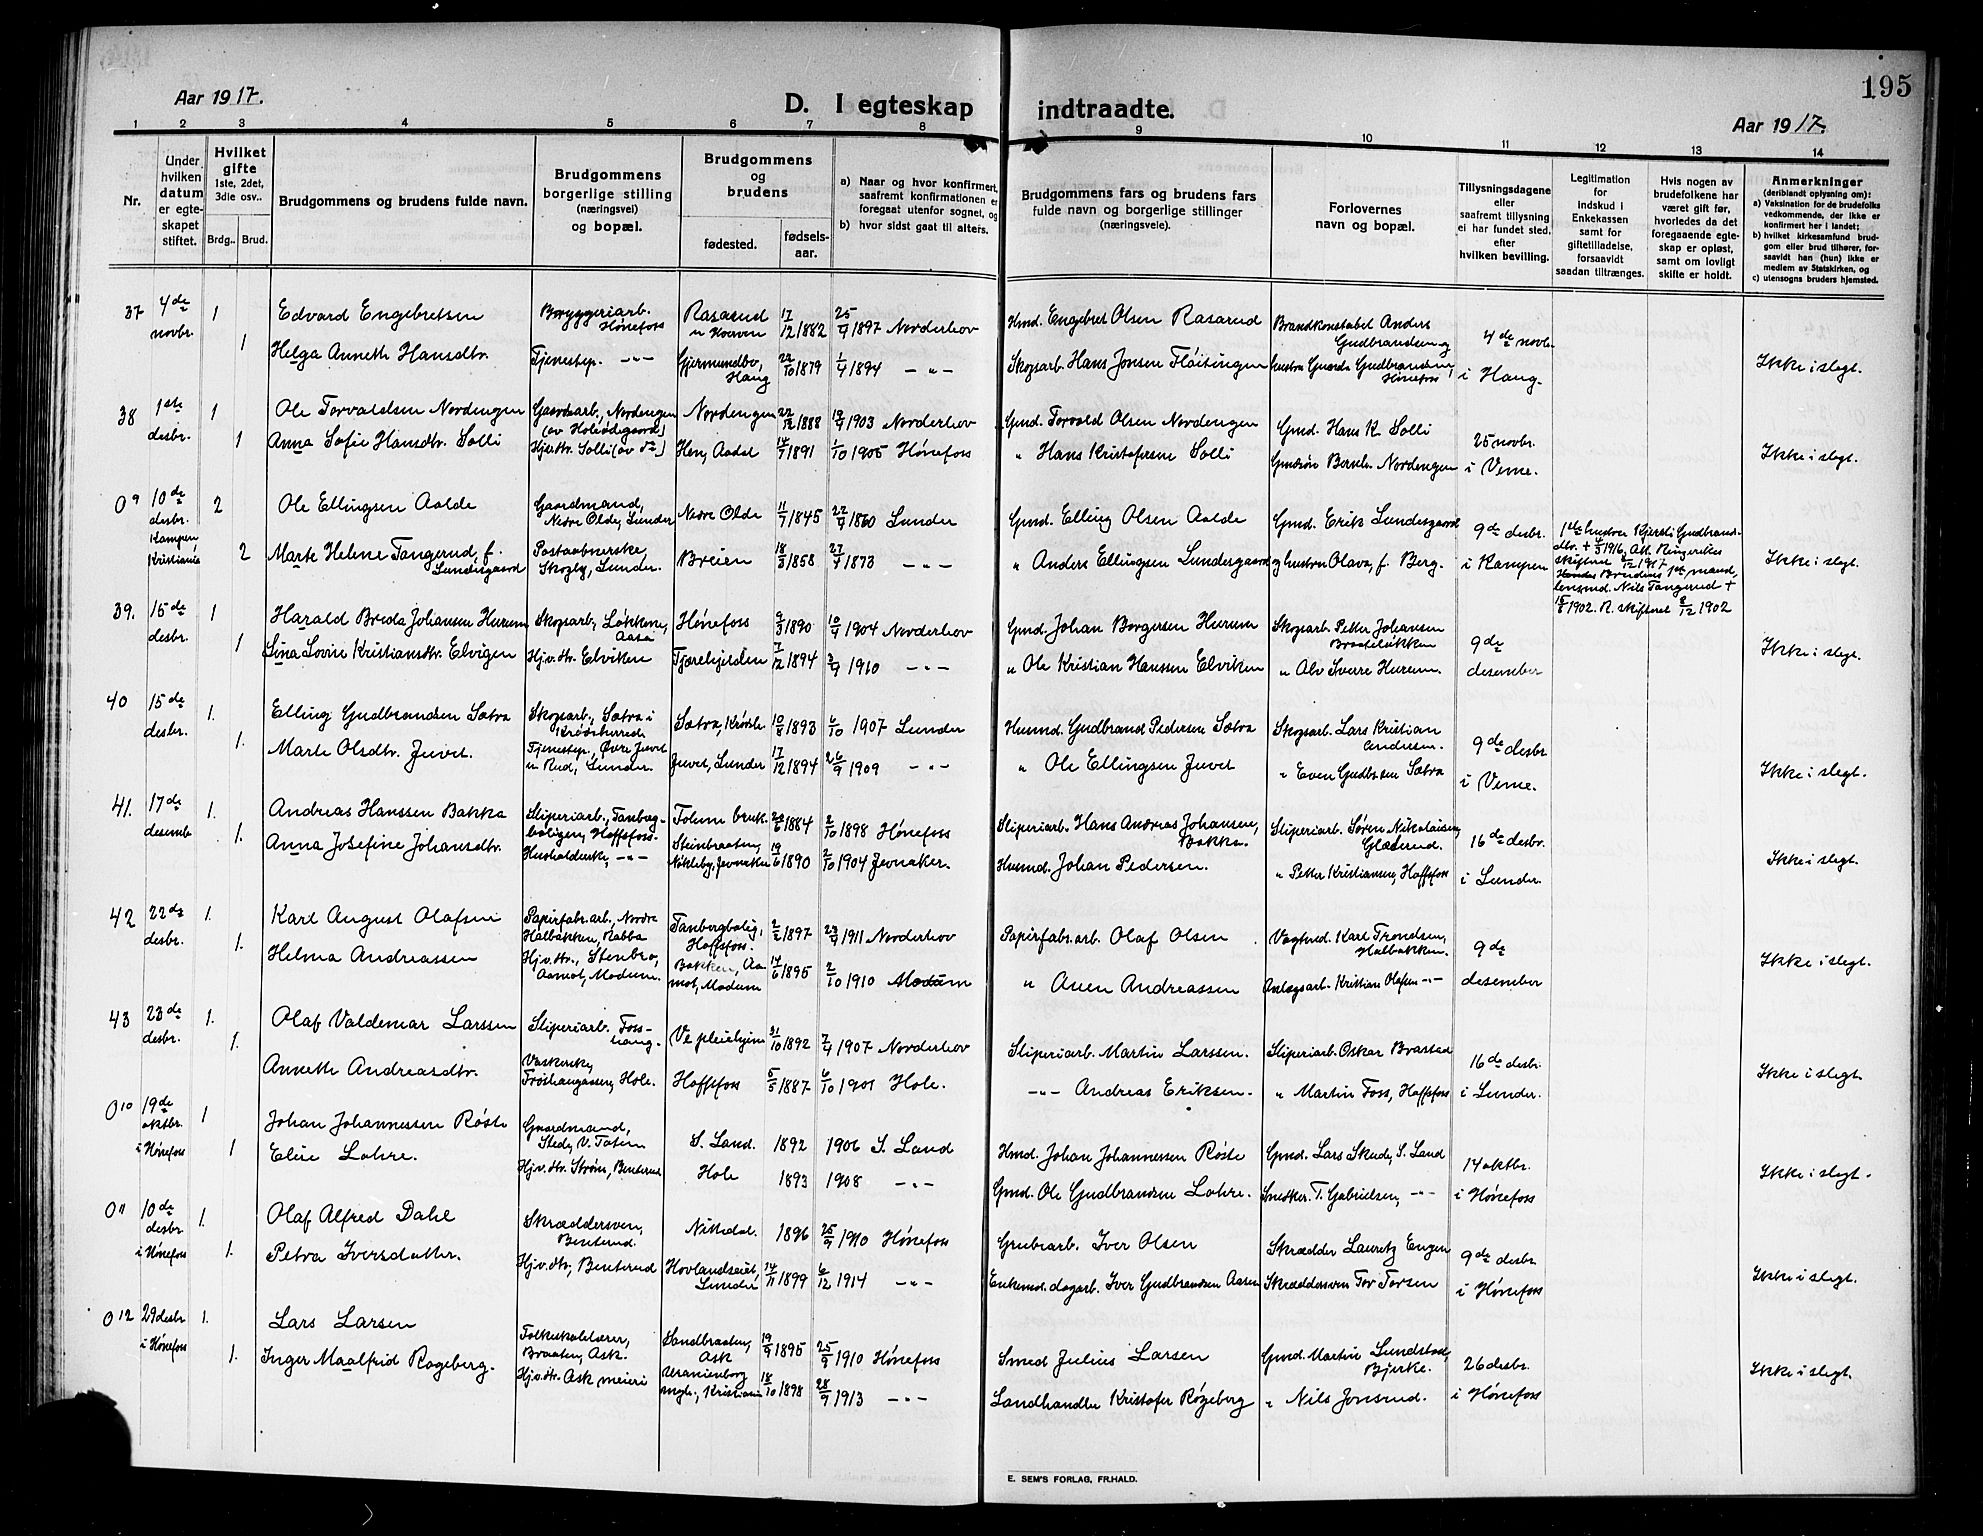 195
Aar 1917.
D. I egteskap indtraadte.
Aar 1917.
1 2 3 4 5 6 7 8 9 10 11 12 13 14
Nr.
Under hvilken datum er egteskapet stiftet.
Hvilket gifte 1ste, 2det, 3die osv..
Brdg.. Brud.
Brudgommens og brudens fulde navn.
Brudgommens borgerlige stilling (næringsvei) og bopæl.
Brudgommens og brudens
fødested.
fødsels-aar.
a) Naar og hvor konfirmert, saafremt konfirmationen er foregaat utenfor sognet, og
b) hvor sidst gaat til alters.
Brudgommens fars og brudens fars fulde navn og borgerlige stillinger (næringsveie).
Forlovernes navn og bopæl.
Tillysningsdagene eller saafremt tillysning ei har fundet sted, efter hvilken bevilling.
Legitimation for indskud i Enkekassen samt for giftetilladelse, forsaavidt saadan tiltrænges.
Hvis nogen av brudefolkene har været gift før, hvorledes da det foregaaende egteskap er opløst, samt om lovligt skifte er holdt.
Anmerkninger (deriblandt oplysning om):
a) Vaksination for de brudefolks vedkommende, der ikke er konfirmert her i landet;
b) hvilket kirkesamfund brudgom eller brud tilhører, forsaavidt han (hun) ikke er medlem av Statskirken, og
c) utensogns bruders hjemsted.
37 4de novbr. 1 Edvard Engebretsen Bryggeriarb. Hønefoss Rasarud 17/12 1882 25/4 1897 Norderhov Hmd. Engebret Olsen Rasarud Brandkonstabel Anders Gudbrandsen og 4de novbr.
1 Helga Anneth Hansdtr. Tjenestep. -"- Gjermundbo, Haug 22/10 1879 1/4 1894 -"- Skogsarb. Hans Jonsen Fløitingen hustru Gunda Gudbrandsen, Hønefoss i Haug. Ikke i slegt.
38 1ste desbr. 1 Ole Torvaldsen Nordengen Gaardsarb., Nordengen Nordengen 22/12 1888 1903 Norderhov Gmd. Torvald Olsen Nordengen Gmd. Hans K. Solli 25 novbr.
1 Anna Sofie Hansdtr. Solli Hjv.dtr. Solli Hen, Aadal 1891 1/10 1905 Hønefoss " Hans Kristofersen Solli Gmdsøn Bernh. Nordengen i Veme. Ikke i slegt.
09 10de desbr. Kampen Kristiania 2 Ole Ellingsen Aalde Gaardmand, Nedre Olde, Lunder Nedre Olde 11/7 1845 22/7 1860 Lunder Gmd. Elling Olsen Aalde Gmd. Erik Lundesgaard 9de desbr. 1ste hustru Kjersti Gudbrandsdtr. + 1916, Att. Ringerikes skifteret 8/12 1917
2 Marte Helene Tangerud, f. Lundesgaard Postaabnerske, Skogly, Lunder. Breien 18/3 1858 27/7 1873 -"- " Anders Ellingsen Lundesgaard og hustru Olava, f. Berg. i Kampen Brudens 1ste mand, lensmd. Nils Tangerud + 1902. R. skifteret 8/12 1902 Ikke i slegt.
39. 15de desbr. 1 Harald Breda Johansen Hurum Skogsarb., Løkkene, Aasa Hønefoss 9/3 1890 10/4 1904 Norderhov Gmd. Johan Borgersen Hurum Skogsarb. Petter Johansen 9de
1 Lina Lovise Kristiansdtr. Elvigen Hjv.dtr. Elviken Tjærehjelden 7/12 1894 1910 -"- " Ole Kristian Hanssen Elviken " Alv Sverre Hurum. desember Ikke i slegt.
40 15de desbr. 1. Elling Gudbrandsen Sætra Skogsarb., Sætra i Krødsherred Sætra, Krødsh. 10/8 1893 6/10 1907 Lunder Husmd. Gudbrand Pedersen Sætra Skogsarb. Lars Kristian Andersen. 9de desbr.
1. Marte Olsdtr. Juvet. Tjenestep., Øvre Juvet Rud, Lunder. Juvet, Lunder 17/12 1894 26/9 1909 -"- " Ole Ellingsen Juvet " Even Gudbr.sen Sætra i Veme. Ikke i slegt.
41. 17de desemb. 1. Andreas Hanssen Bakka Sliperiarb., Tanberg-boligen, Hoffsfoss. Follum bruk. 1884 2/10 1898 Hønefoss Sliperiarb. Hans Andreas Johansen, Bakka. Sliperiarb. Søren Nikolaisen, 16de desbr.
1. Anna Josefine Johansdtr. Husholderske, -"- Steinbraaten, Nikleby, Jevnaker 19/6 1890 2/10 1904 Jevnaker. Husmd. Johan Pedersen. " Petter Kristiansen, Hoffsfoss i Lunder. Ikke i slegt.
42 22de desbr. 1. Karl August Olafsen Papirfabr.arb., Nordre Halbakken, Rabba Tanbergbolig, Hoffsfoss. 2/2 1897 1911 Norderhov Papirfabr.arb. Olaf Olsen Vagtred. Karl Trondsen, Halbakken. 9de
1. Helma Andreassen Hjv.dtr., Stenbro, Aamot, Modum. Bakken, Aamot, Modum 14/6 1895 2/10 1910 Modum " Anen Andreassen Anlægsarb. Kristian Olafsen -"- desember Ikke i slegt.
43 23de desbr. 1. Olaf Valdemar Larssen Sliperiarb. Foss-haug. Ve pleiehjem 31/10 1892 7/4 1907 Norderhov Sliperiarb. Martin Larssen. Sliperiarb. Oskar Brastad 16de desbr.
1. Anneth Andreasdtr. Vaskerske, Frøshaugassen, Hole. Hoffsfoss 5/5 1887 6/10 1901 Hole. -"- Andreas Eriksen. " Martin Foss, Hoffsfoss i Lunder. Ikke i slegt.
010 19de oktbr. i Hønefoss 1 Johan Johannessen Røste Gaardmand, V. Toten S. Land. 1892 1906 S. Land Hmd. Johan Johannessen Røste Gmd. Lars Skude, S. Land 14 oktbr.
1 Elise Lohre. Hjv.dtr. Strøm, Benterud Hole 1893 1908 -"- Gmd. Ole Gudbrandsen Lohre. Snedker. T. Gabrielsen, -"- i Hønefoss Ikke i slegt.
011 10de desbr i Hønefoss 1. Olaf Alfred Dahl Skræddersven, Benterud. Nittedal. 1896 25/9 1910 Hønefoss Grubearb. Iver Olsen Skrædder Lauretz Engen 9de desbr.
1. Petra Iversdatter. Hjv.dtr., Benterud Hovlandseiet, Lunder 14/11 1899 6/12 1914 -"- Enkemd. dagarb. Iver Gudbrandsen Aasen Skræddersven Tor Torsen i Hønefoss Ikke i slegt.
012 29 desbr i Hønefoss 1. Lars Larsen Folkeskolelærer, Braaten, Ask. Sandbraaten, Ask 19/9 1895 25/9 1910 Hønefoss Smed Julius Larsen Gmd. Martin Lundstad, Bjerke. 26 desbr.
1. Inger Maalfrid Røgeberg. Hjv.dtr. Ask meieri Uranienborg mgh., Kristiania 18/10 1898 28/9 1913 -"- Landhandler Kristofer Røgeberg " Nils Jonsrud. i Hønefoss Ikke i slegt.
E. SEM'S FORLAG, FR.HALD.